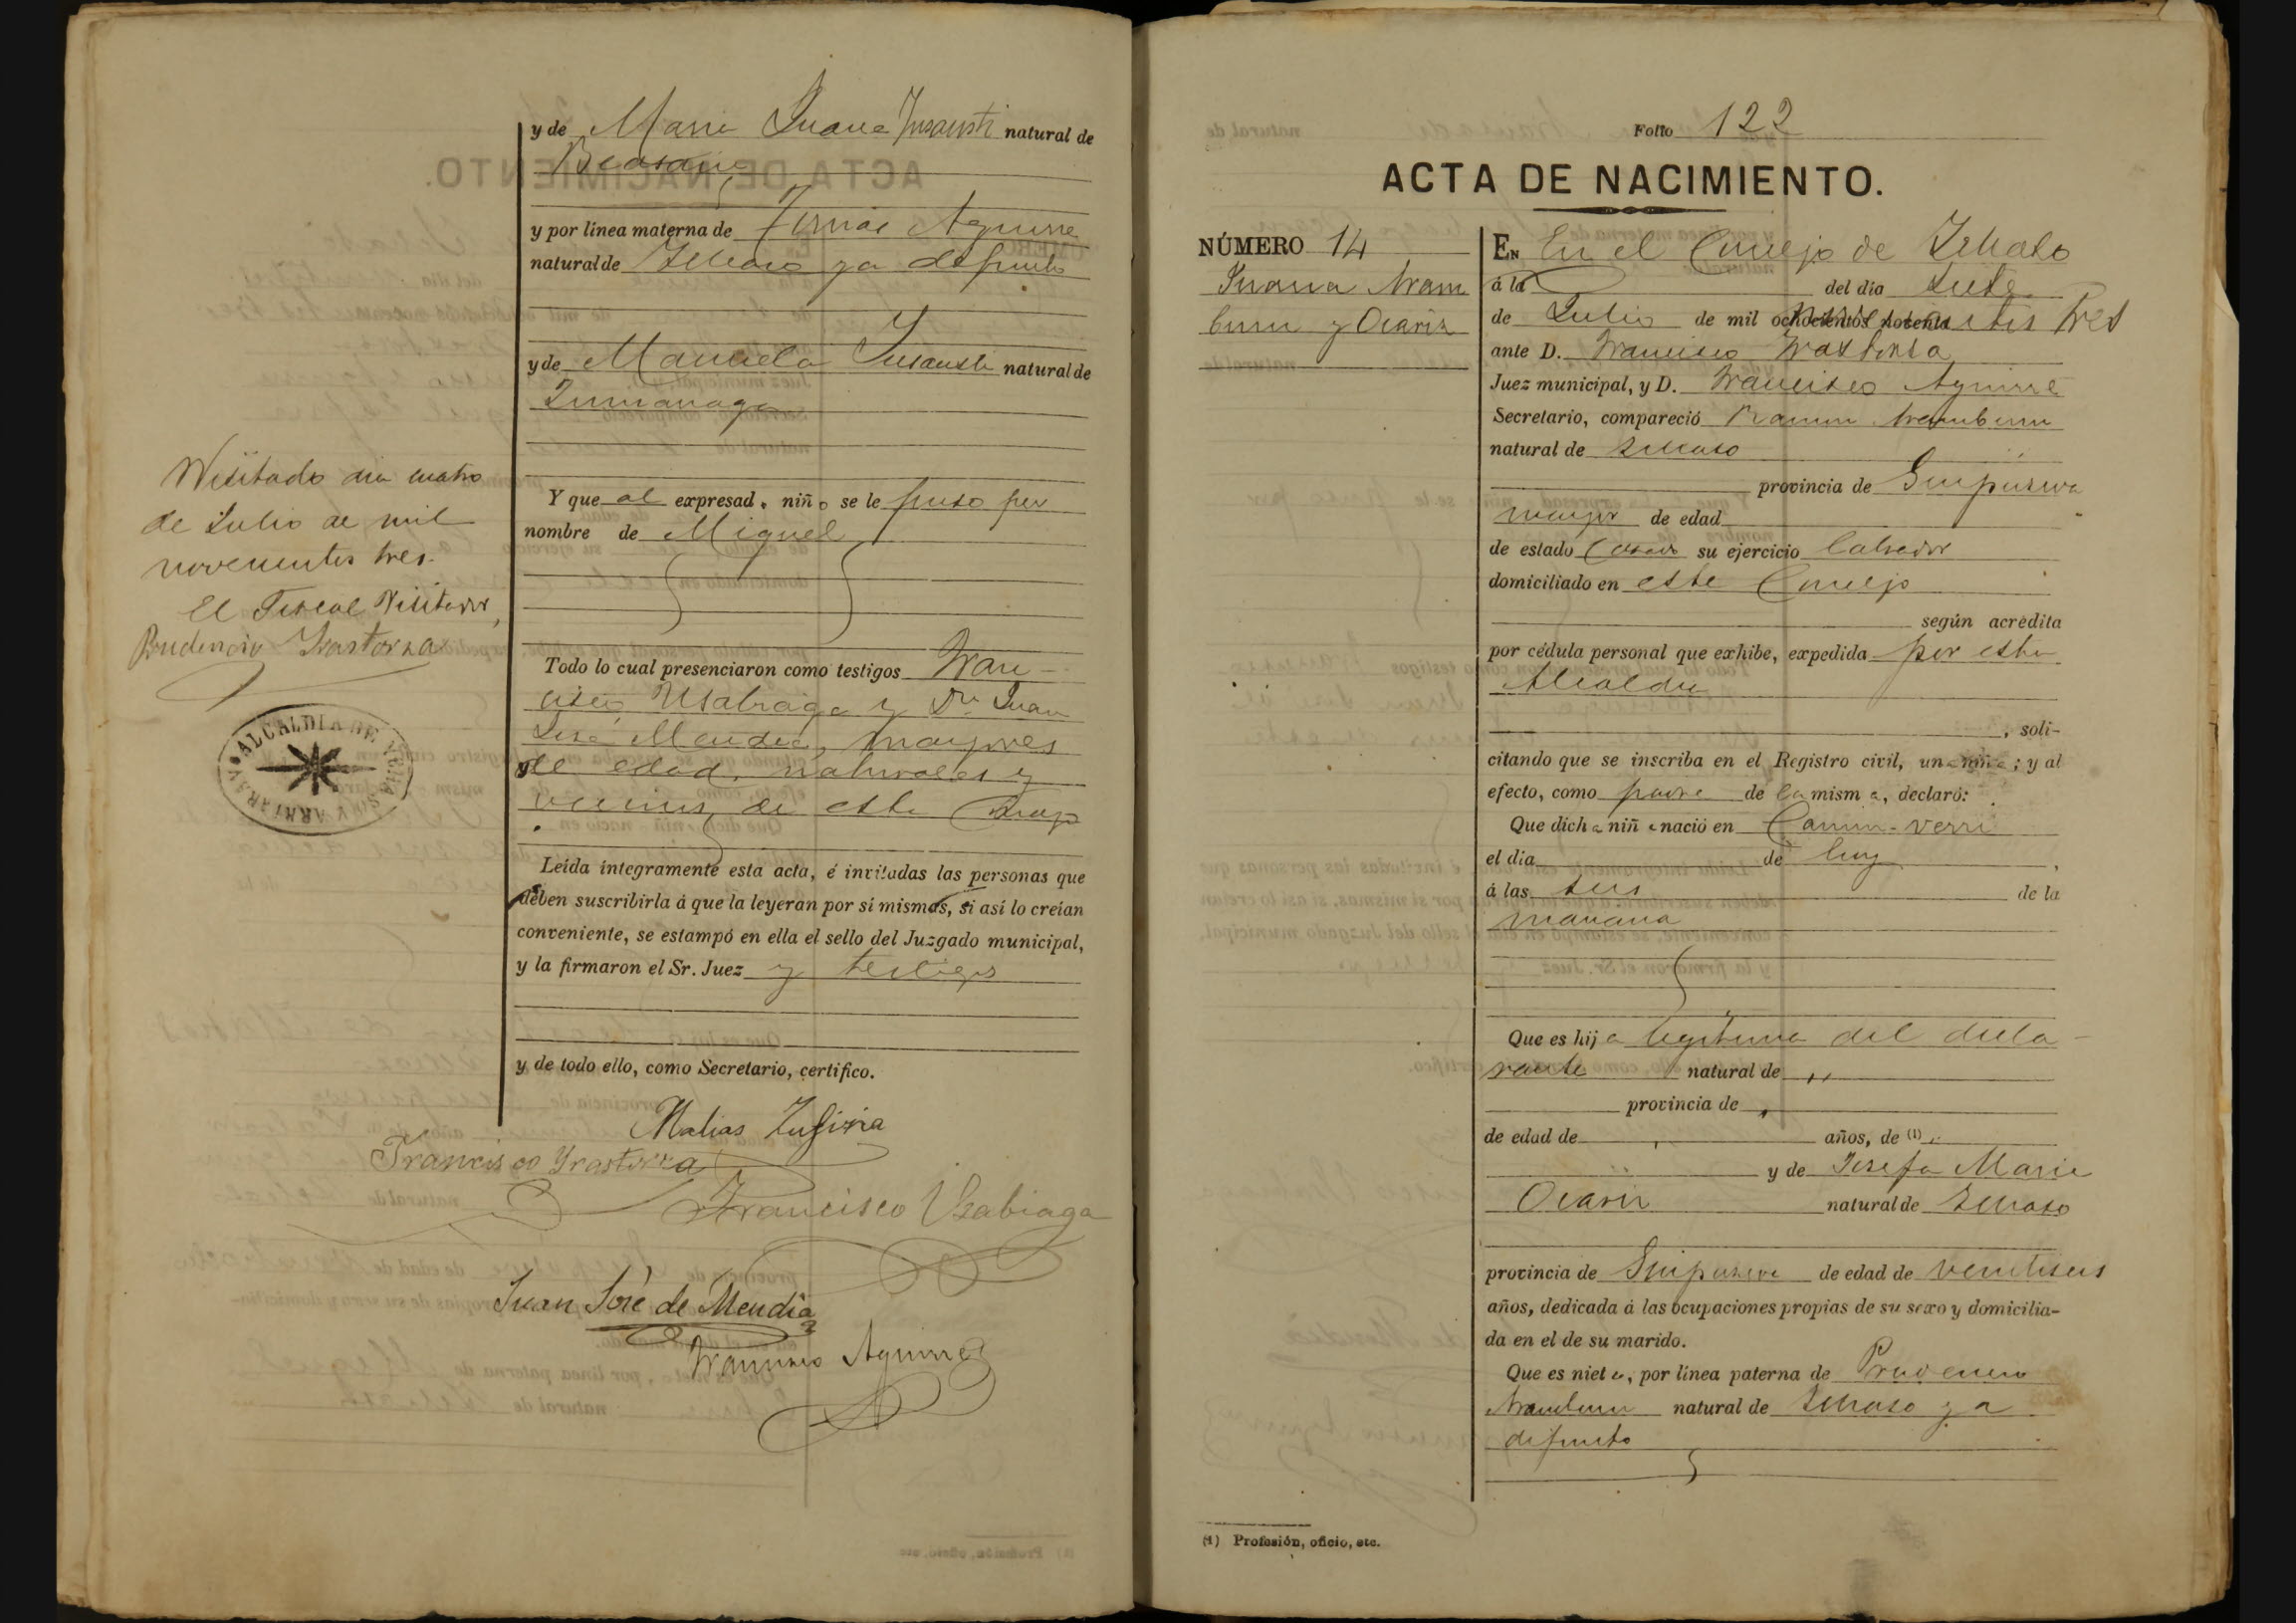 y de Maria Juana Insausti natural de
Beasain
y por línea materna de Tomás Aguirre
natural de Ichaso ya difunto
y de Manuela Insausti natural de
Zumarraga
Y que al expresad. niño se le puso por
nombre de Miguel
Todo lo cual presenciaron como testigos Fran-
cisco Usabiaga y Dn Juan
José Mendia, mayores
de edad, naturales y
vecinos de este Concejo
Leída íntegramente esta acta, é invitadas las personas que
deben suscribirla á que la leyeran por sí mismas, si así lo creían
conveniente, se estampó en ella el sello del Juzgado municipal,
y la firmaron el Sr. Juez y testigos
y de todo ello, como Secretario, certifico.
Matias
Francisco Yrastorza
Francisco Usabiaga
Juan José de Mendia
Francisco Aguirre
Visitado dia cuatro
de Julio de mil
novecientos tres.
El Fiscal Visitador,
Prudencio Yrastorza
ALCALDIA DE
Folio 122
ACTA DE NACIMIENTO.
NÚMERO 14
Juana Aram
buru y Ocariz
En En el Concejo de Ichaso
á la del dia siete
de Julio de mil ochocientos noventa novecientos tres
ante D. Francisco Irastorza
Juez municipal, y D. Francisco Aguirre
Secretario, compareció Ramon Aramburu
natural de Ichaso
provincia de Guipuzcoa
mayor de edad
de estado Casado su ejercicio labrador
domiciliado en este Concejo
según acredita
por cédula personal que exhibe, expedida por esta
Alcaldia
, soli-
citando que se inscriba en el Registro civil, una niña; y al
efecto, como padre de la misma, declaró:
Que dicha niña nació en Camin-verri
el dia de hoy
á las seis de la
mañana
Que es hija legitima del decla-
rante natural de ,,
provincia de ,,
de edad de , años, de (1) ,,
y de Josefa Maria
Ocariz natural de Ichaso
provincia de Guipuzcoa de edad de veintiseis
años, dedicada á las ocupaciones propias de su sexo y domicilia-
da en el de su marido.
Que es nieta, por línea paterna de Prudencio
Aramburu natural de Ichaso ya
difunto
(1) Profesión, oficio, etc.